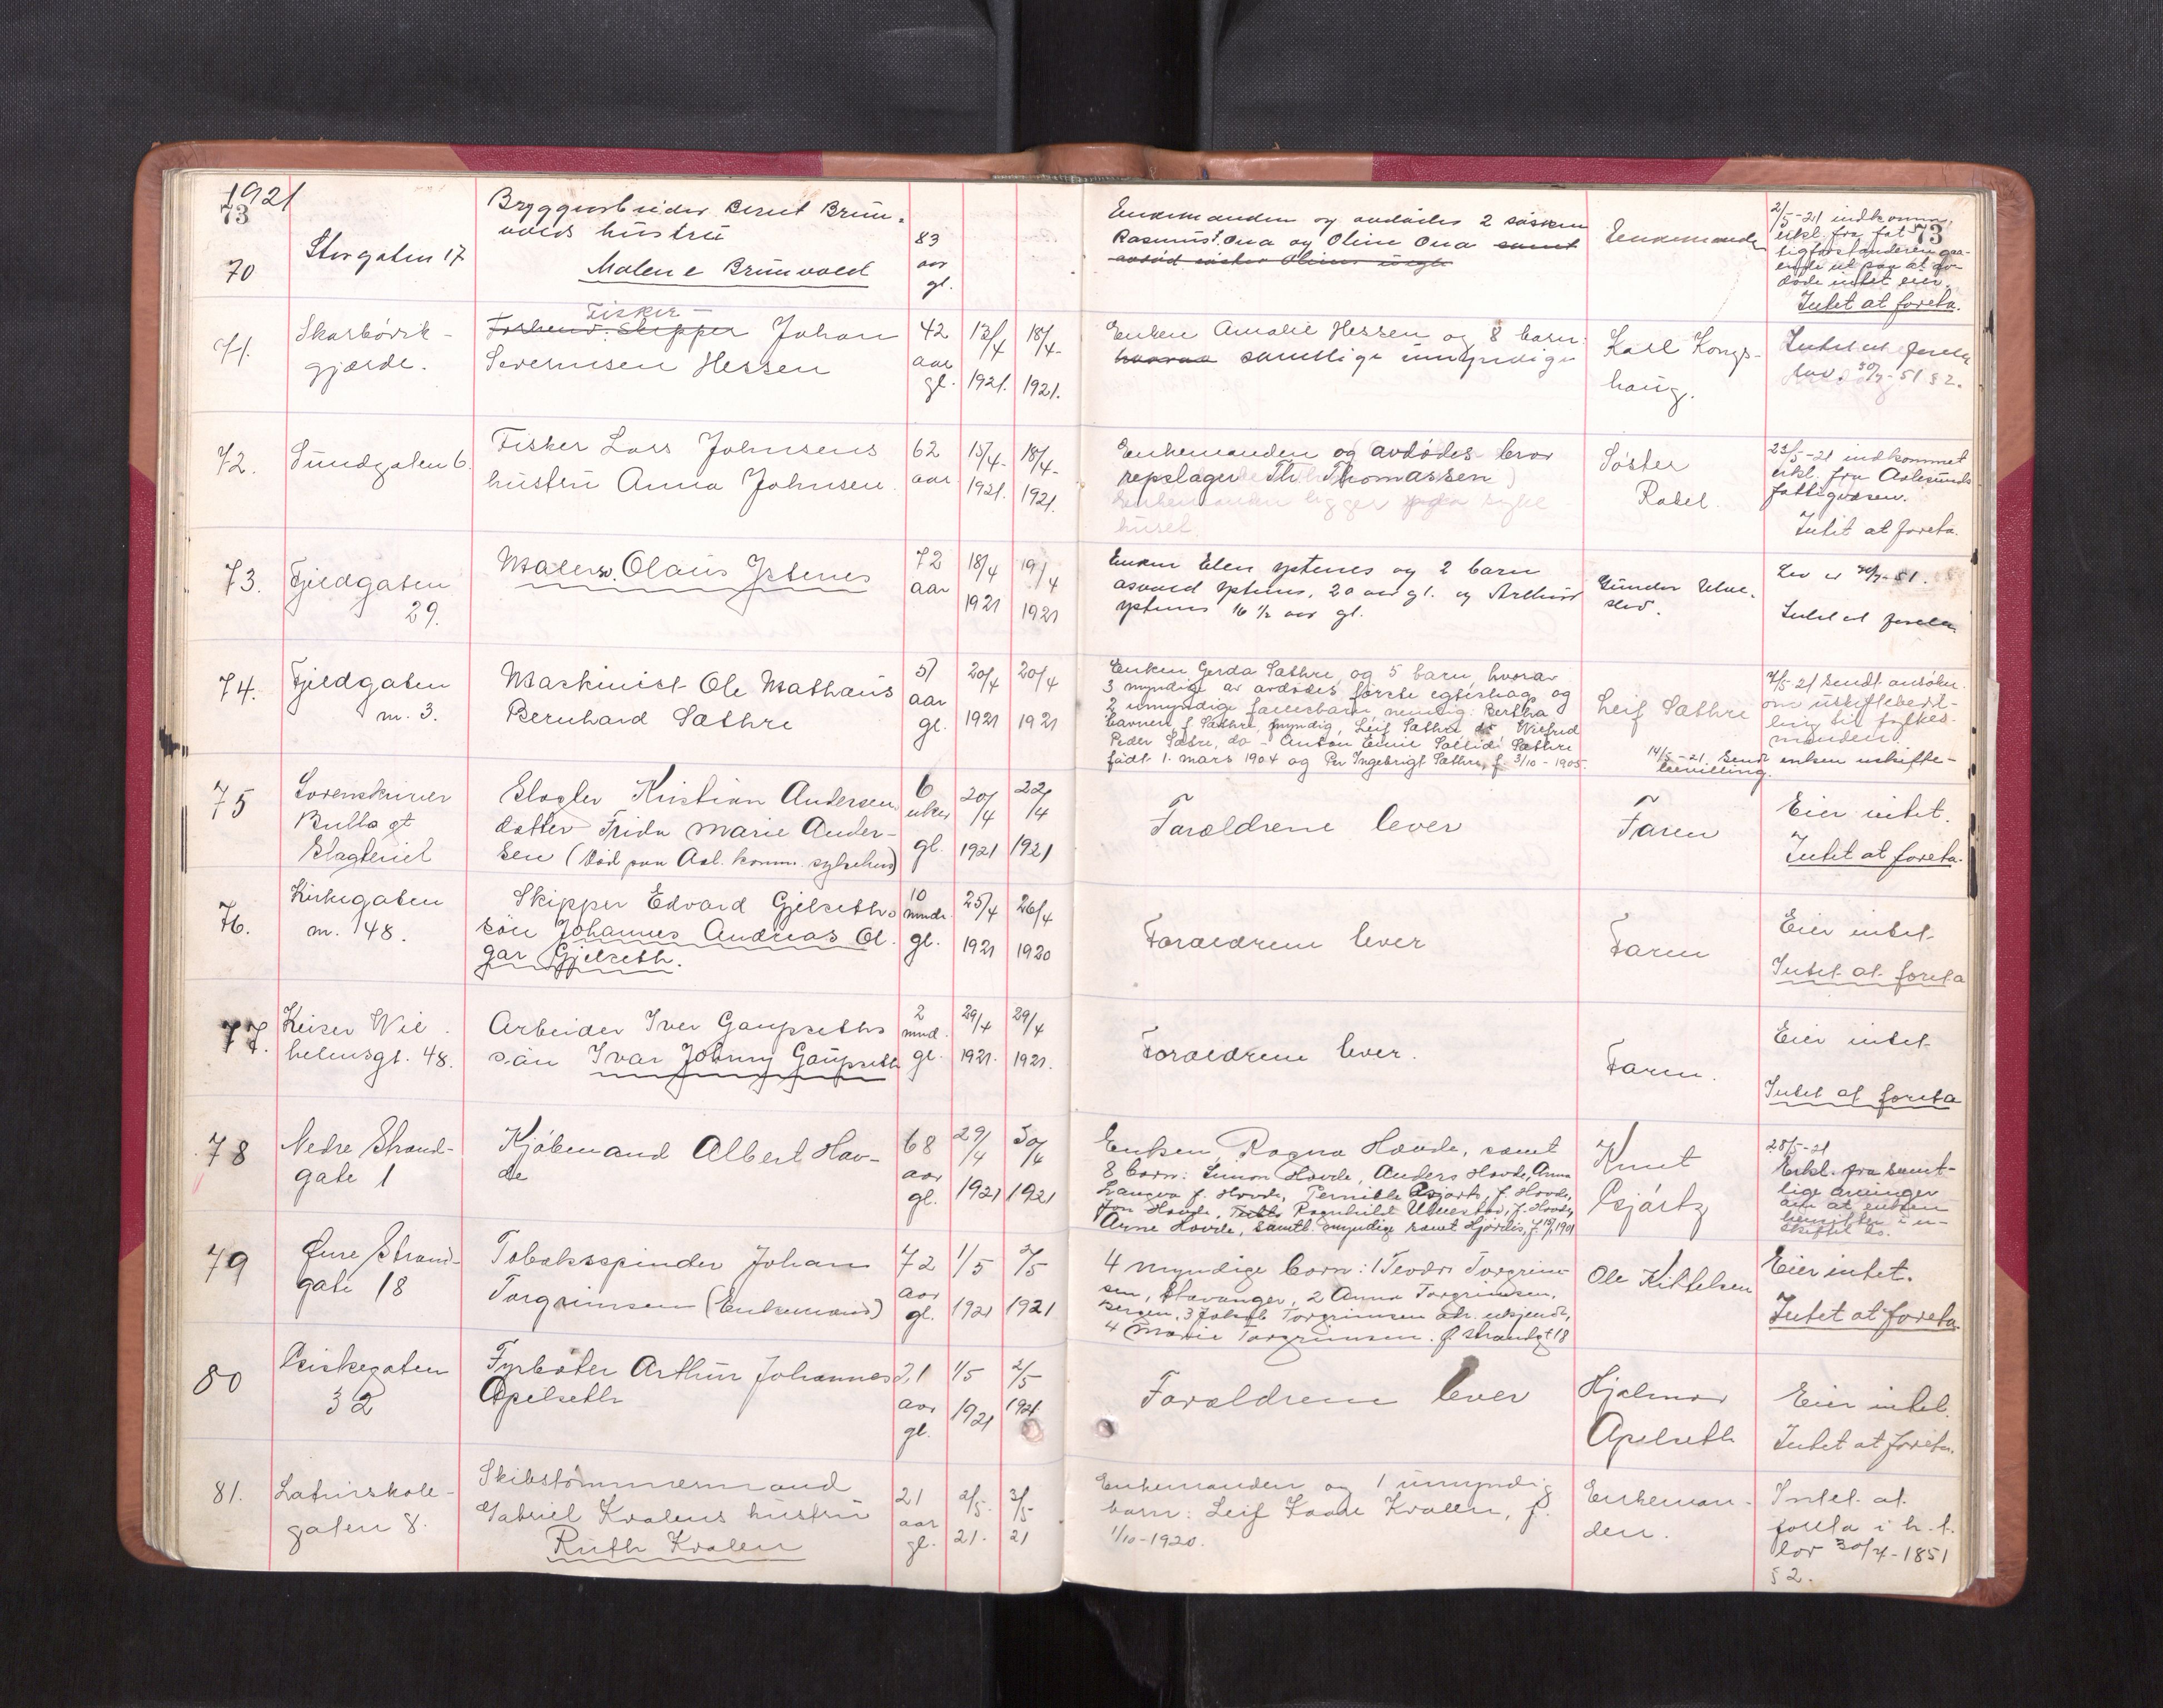 1921
73
70
Storgaten 17
Bryggearbeider Bernt Brun-
volds hustru
Malene Brunvold
83
aar
gl.
Enkemanden og avdødes 2 søsken
Rasmus T. Ona og Oline Ona samt
Enkemanden
2/5-21 indkommet
erkl. fra fat-
73
tigforstanderen gaa-
ende ut paa at av-
døde intet eier.
Intet at foreta.
71.
Skarbøvik-
gjærde.
Fisker
Forhenv. Skipper Johan
Severinsen Hessen
42
aar
gl.
13/4
1921.
18/4
1921.
Enken Amalie Hessen og 8 barn:
hvorav samtlige umyndige
Karl Kongs-
haug.
Intet at foreta
lov. 30/7-51 § 2.
72.
Sundgaten 6.
Fisker Lars Johnsens
hustru Anna Johnsen
62
aar
15/4-
1921.
18/4-
1921.
Enkemanden og avdødes bror
repslager Th. Thomassen
Enkemanden ligger paa syke
huset.
Søster
Rakel.
23/5-21 indkommet
erkl. fra Aalesunds
fattigvæsen.
Intet at foreta.
73.
Fjeldgaten
29.
Maler Olaus Ystenes
72
aar
18/4
1921
19/4
1921
Enken Elen Ystenes og 2 barn
Ystenes, 20 aar gl. og Arthur
Ystenes 16 1/2 aar gl.
Gunder
Lov av 30/7-51.
Intet at foreta
74.
Fjeldgaten
nr. 3.
Maskinist Ole Mathæus
Bernhard Sæthre
51
aar
gl.
20/4
1921
20/4
1921
Enken Gerda Sæthre, og 5 barn, hvorav
3 myndige av avdødes første egteskap og
2 umyndige fællesbarn nemlig: Bertha
f. Sæthre, myndig, Leif Sæthre do Wilfred
Peder Sæthre, do - Anton Sæthre
født 1. mars 1904 og Per Ingebrigt Sæthre, f. 3/10-1905.
Leif Sæthre
7/5-21 sendt ansøkn.
om uskiftebevil-
ling til fylkes-
manden.
14/5-21. Sendt enken uskifte-
bevilling.
75
Sorenskriver
Bulls gt
Slagteriet
Slagter Kristian Andersens
datter Frida Marie Ander-
sen (Død paa Aal. komm. sykehus)
6
uker
gl.
20/4
1921
22/4
1921
Forældrene lever
Faren
Eier intet.
Intet at foreta.
76.
Kirkegaten
nr. 48.
Skipper Edvard Gjelseths
søn Johannes Andreas Ol-
gar Gjelseth.
10
mndr.
gl.
25/4
1921
26/4
1920
Forældrene lever
Faren
Eier intet
Intet at foreta
77.
Keiser Wil-
helmsgt. 48.
Arbeider Iver Gaupseths
søn Ivar Johnny Gaupseth
2
mnd.
gl.
29/4
1921.
29/4
1921.
Forældrene lever.
Faren.
Eier intet
Intet at foreta
78
Nedre Strand-
gate 1
Kjøbmand Albert Hov-
de
68
aar
gl.
29/4
1921
30/4
1921
Enken Ragna Hovde, samt
8 barn: Simon Hovde, Anders Hovde, Anna
f. Hovde, Pernille Bjartz, f. Hovde,
Jon Hovde, Ragnhild Ulvestad, f. Hovde,
Arne Hovde, samtl. myndige samt Hjørdis, f. 1901
Knut
Bjártz
28/5-21
Erkl. fra samt-
lige arvinger
om at enken
besitter i u-
skiftet bo.
79
Øvre Strand-
gate 18
Tobaksspinder Johan
Torgrimsen (Enkemand)
72
aar
gl.
1/5
1921
2/5
1921
4 myndige barn: 1 Teodor Torgrim-
sen, Stavanger, 2 Anna Torgrimsen,
Bergen, 3 Jakob Torgrimsen adr. ukjendt,
4 Marie Torgrimsen. Ø. Strandgt 18
Ole Kittelsen
Eier intet.
Intet at foreta.
80
Giskegaten
32
Fyrbøter Arthur Johannes
Apelseth
21
aar
gl.
1/5
1921
2/5
1921
Forældrene lever
Hjalmar
Apelseth
Eier intet.
Intet at foreta.
81.
Latinskole-
gaten 8.
Skibstømmermand
Gabriel Kvalens hustru
Ruth Kvalen
21
aar
gl.
2/5-
21.
3/5-
21
Enkemanden og 1 umyndig
barn: Leif Kaare Kvalen, f.
1/10-1920.
Enkeman-
den.
Intet at
foreta i h. t.
lov 30/7-1851
§ 2.